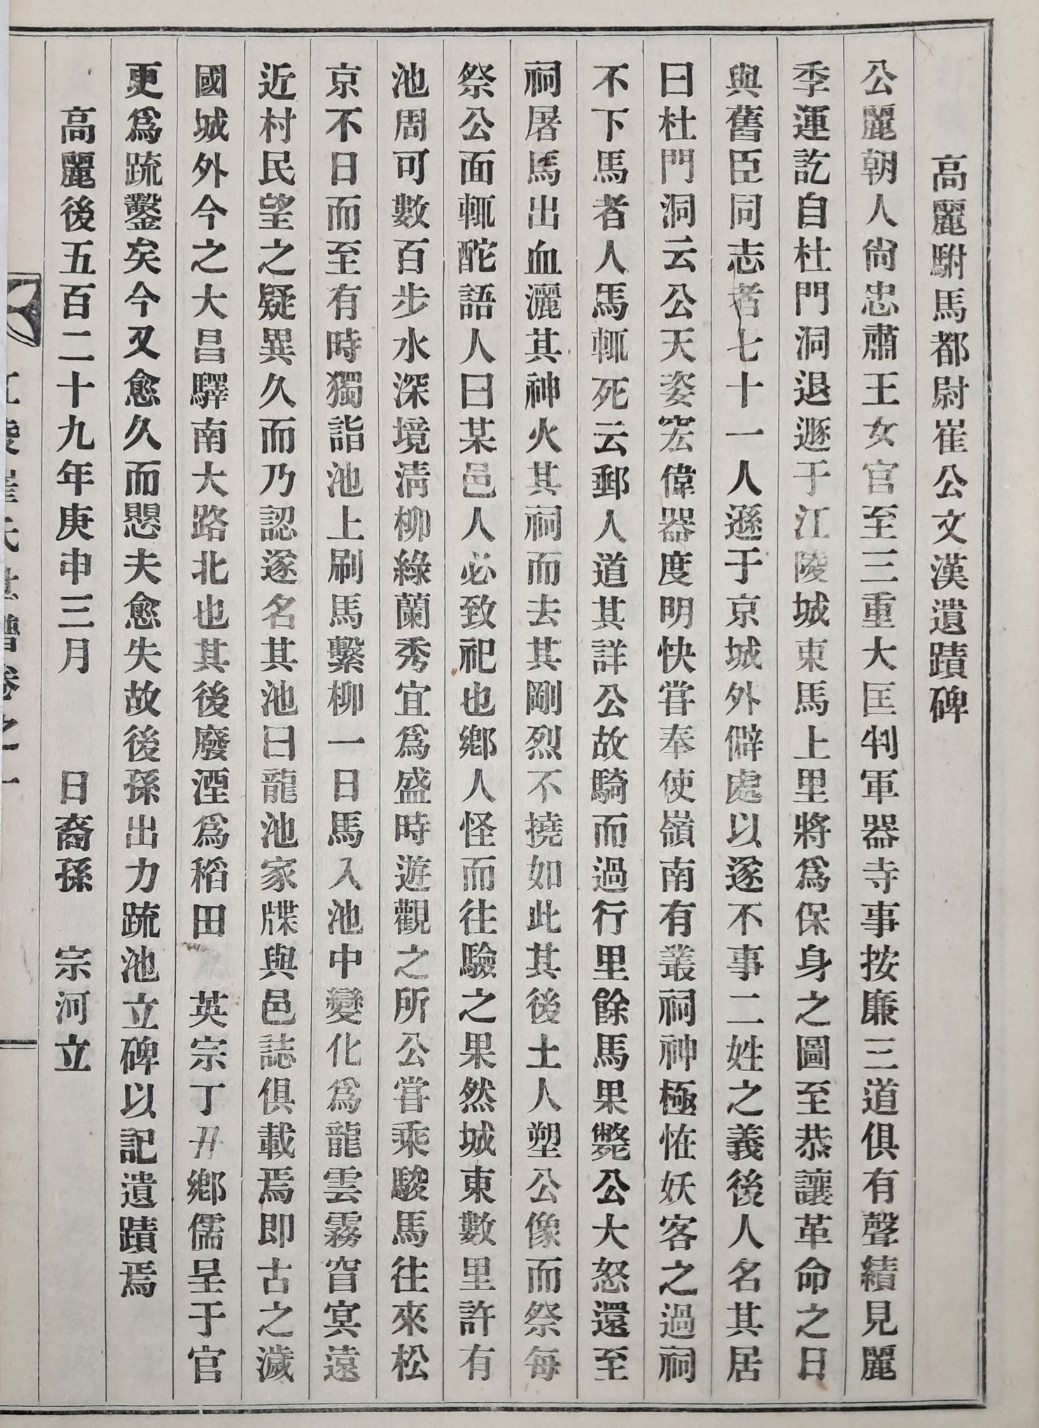 高麗駙馬都尉崔公文漢遺蹟碑
公麗朝人尙忠肅王女官至三重大匡判軍器寺事按廉三道俱有聲績見麗
季運訖自杜門洞退遯于江陵城東馬上里將爲保身之圖至恭讓革命之日
與舊臣同志者七十一人遜于京城外僻處以遂不事二姓之義後人名其居
曰杜門洞云公天姿宏偉器度明快嘗奉使嶺南有叢祠神極恠妖客之過祠
不下馬者人馬輒死云郵人道其詳公故騎而過行里餘馬果斃公大怒還至
祠屠馬出血灑其神火其祠而去其剛烈不撓如此其後土人塑公像而祭每
祭公面輒酡語人曰某邑人必致祀也鄕人怪而往驗之果然城東數里許有
池周可數百步水深境淸柳綠蘭秀宜爲盛時遊觀之所公嘗乘駿馬往來松
京不日而至有時獨詣池上刷馬繫柳一日馬入池中變化爲龍雲霧窅冥遠
近村民望之疑異久而乃認遂名其池曰龍池家牒與邑誌俱載焉即古之濊
國城外今之大昌驛南大路北也其後廢湮爲稻田 英宗丁丑鄕儒呈于官
更爲疏鑿矣今又愈久而愳夫愈失故後孫出力疏池立碑以記遺蹟焉
高麗後五百二十九年庚申三月 日裔孫 宗河立
江陵崔氏世譜卷之一